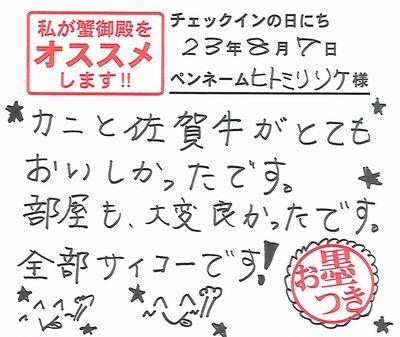 私が蟹御殿を
オススメ
します!!
チェックインの日にち
23年8月7日
ペンネームヒトミリソケ様
カニと佐賀牛がとても
おいしかったです。
部屋も、大変良かったです。
全部サイコーです!
お墨つき